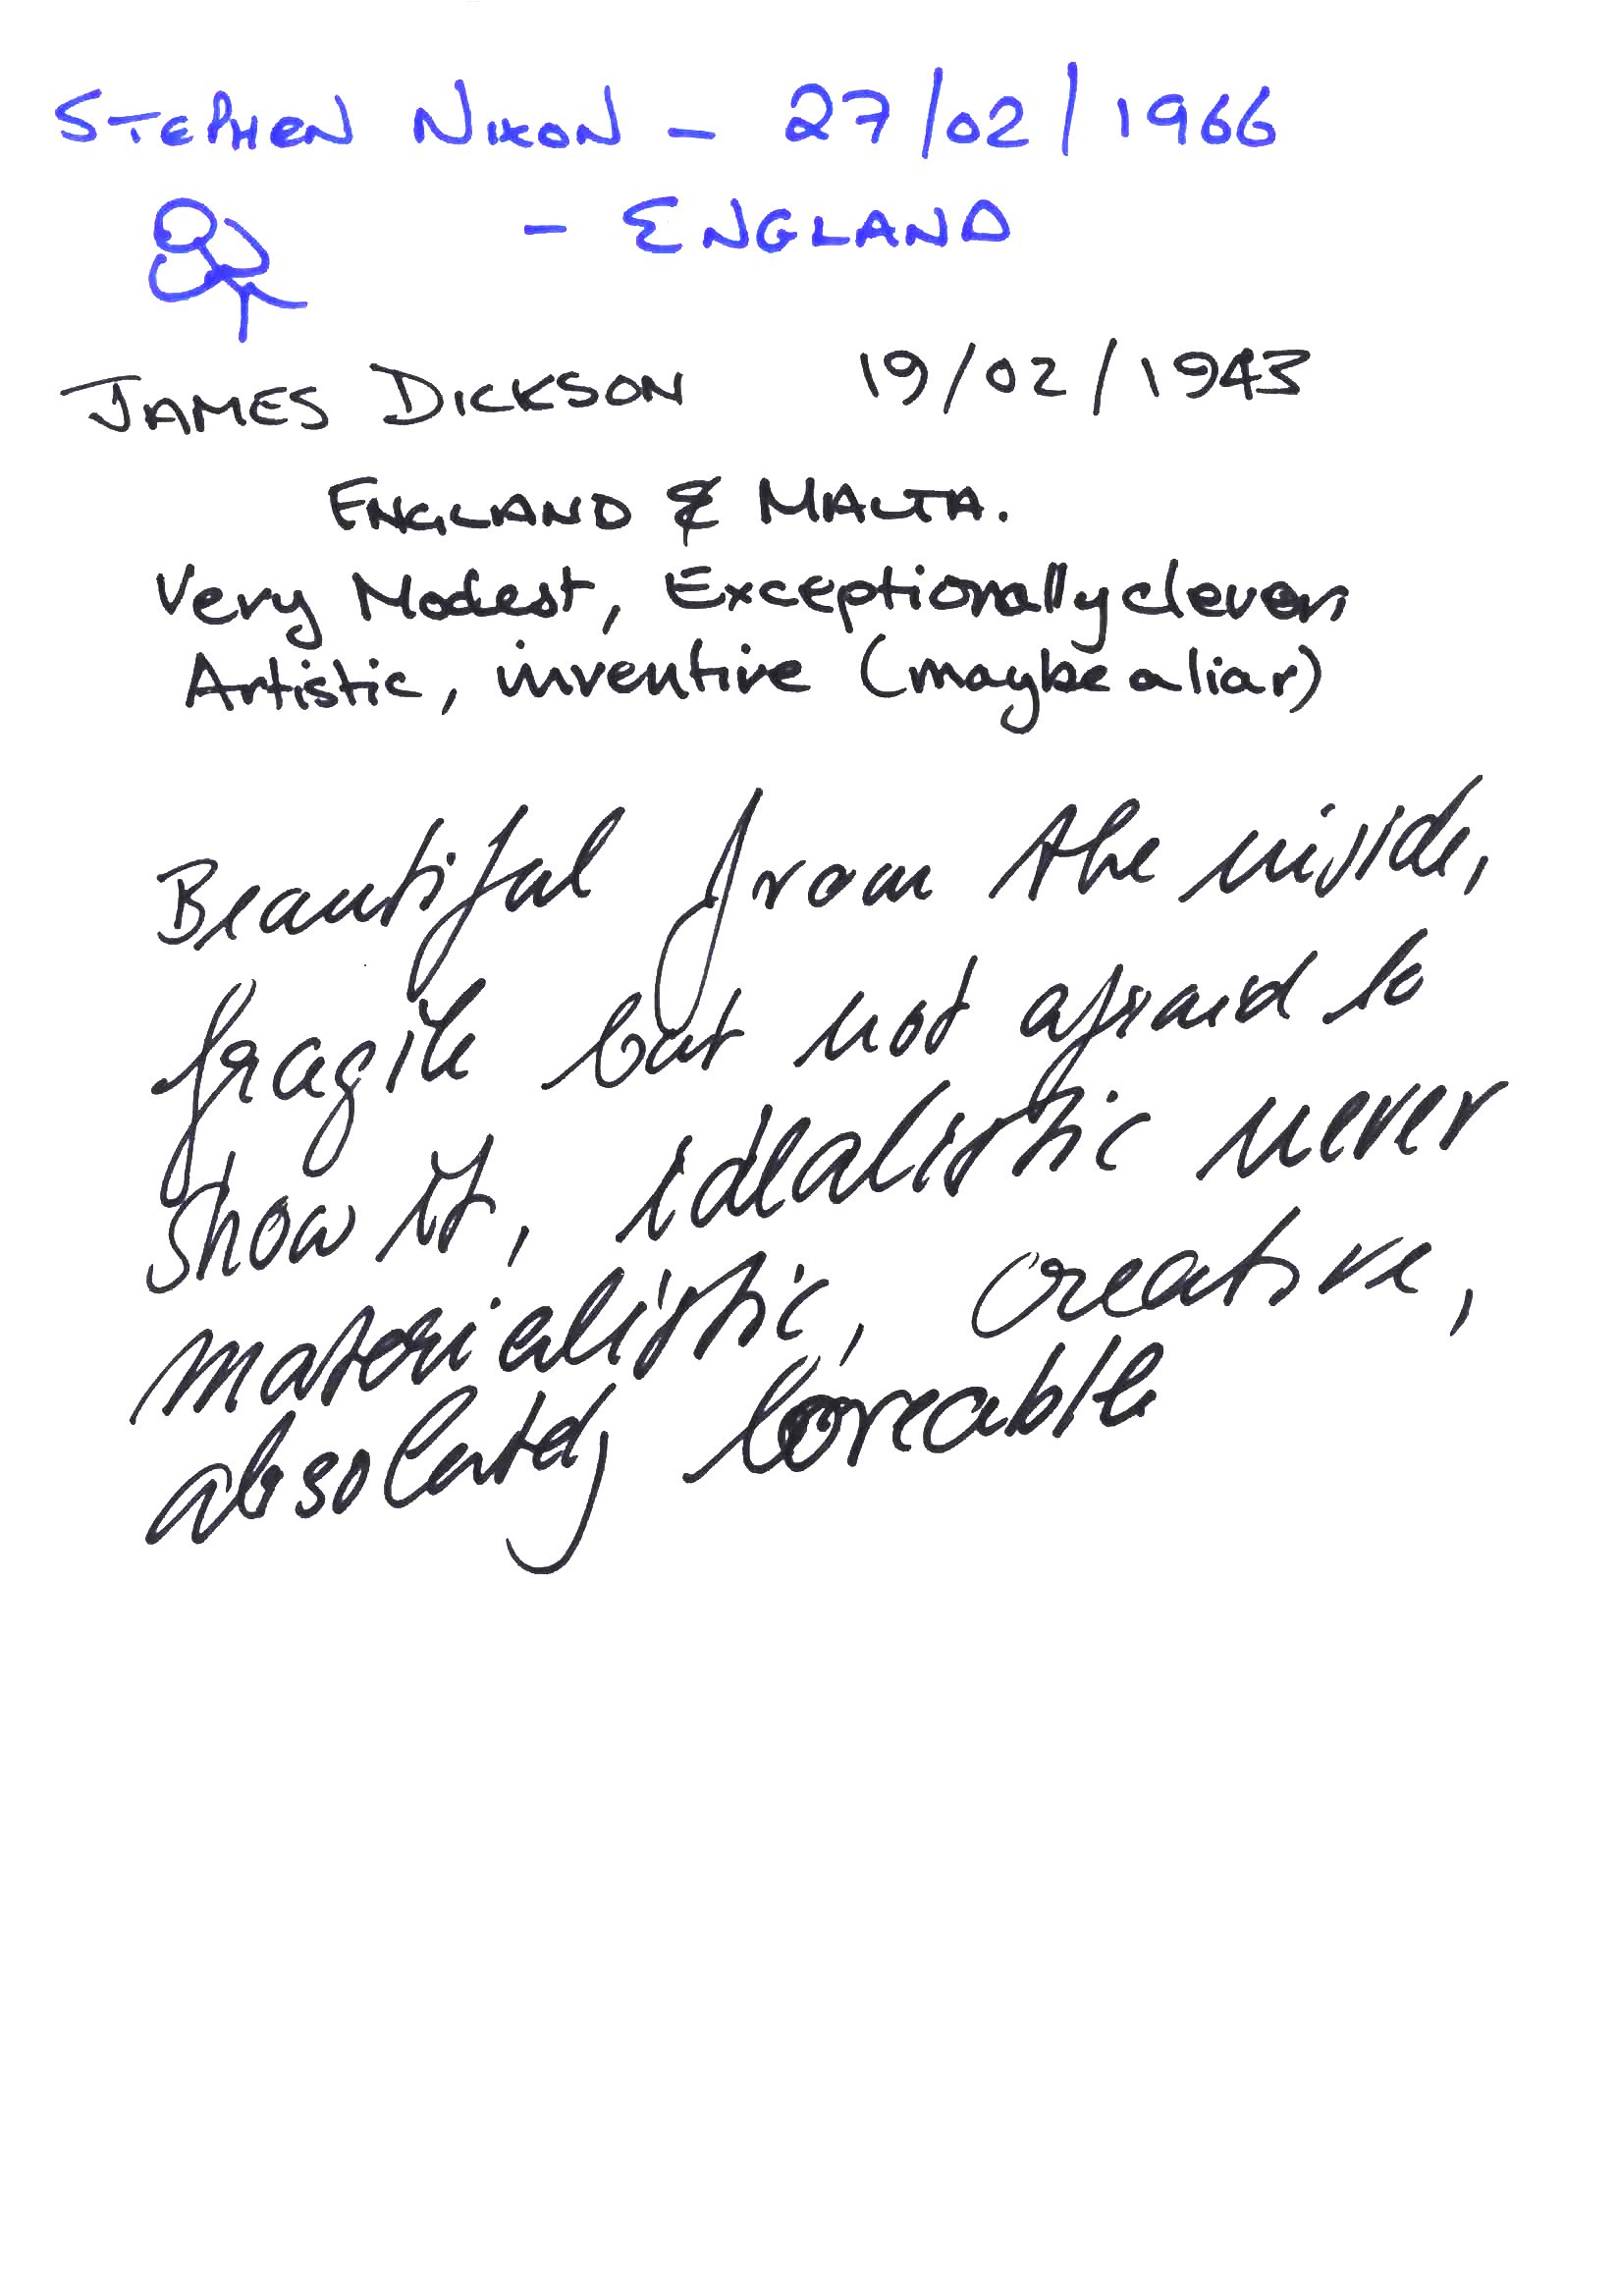 STEPHEN NIXON - 27/02/1966
- ENGLAND
JAMES DICKSON 19/02/1943
ENGLAND & MALTA.
Very Modest, Exceptionally clever,
Artistic, inventive (maybe a liar)
Beautiful from the inside,
fragile but not afraid to
show it, idealistic never
materialistic, creative,
absolutely loveable